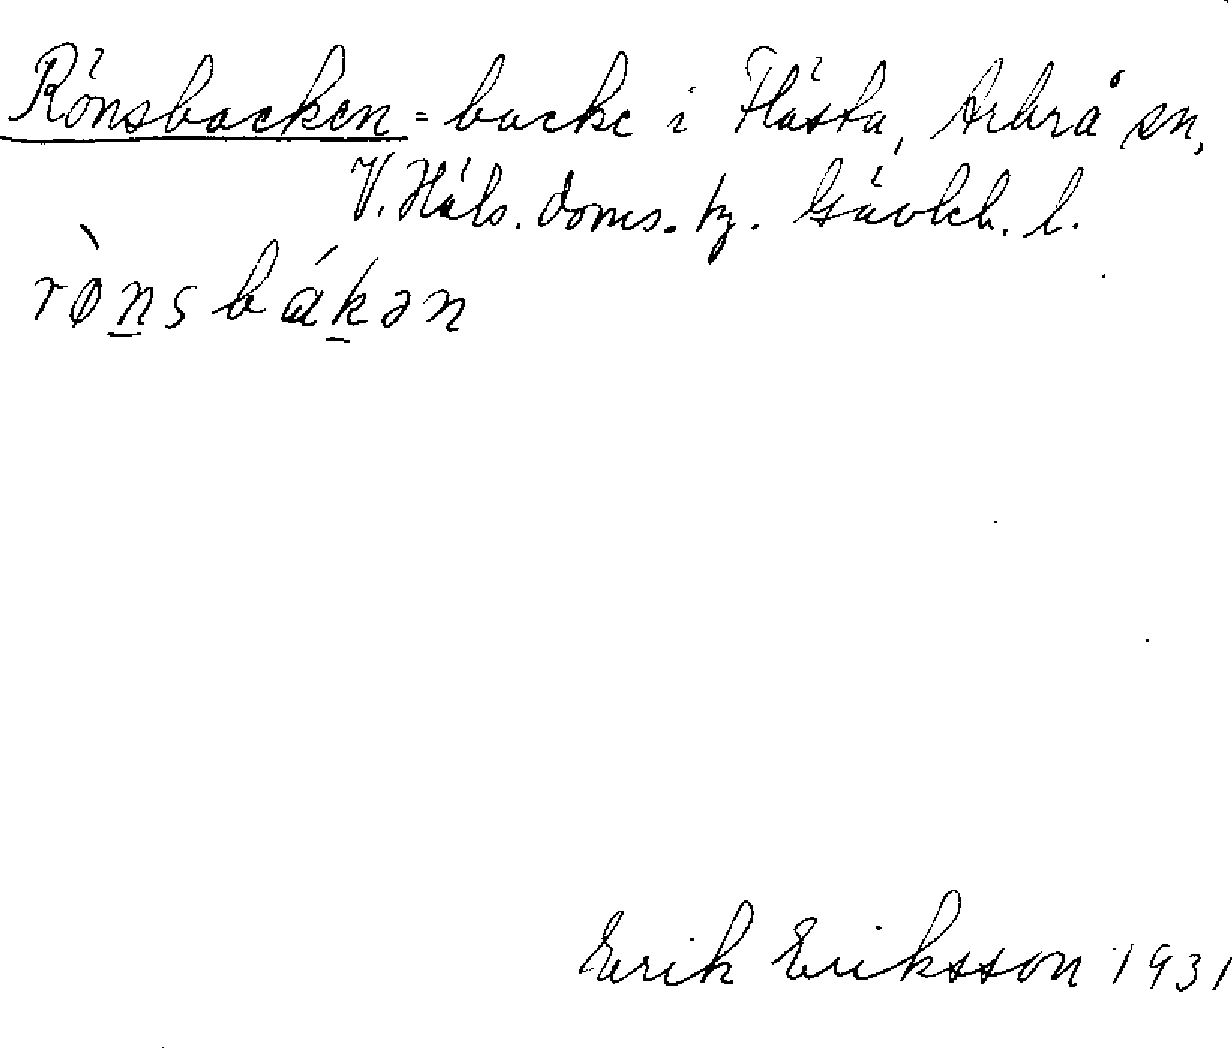 Rönsbacken = backe i Flästa, Arbrå sn,
V. Häls. doms. tg. Gävleb. l.
rø̀n̲sbák̲ən
Erik Eriksson 1931